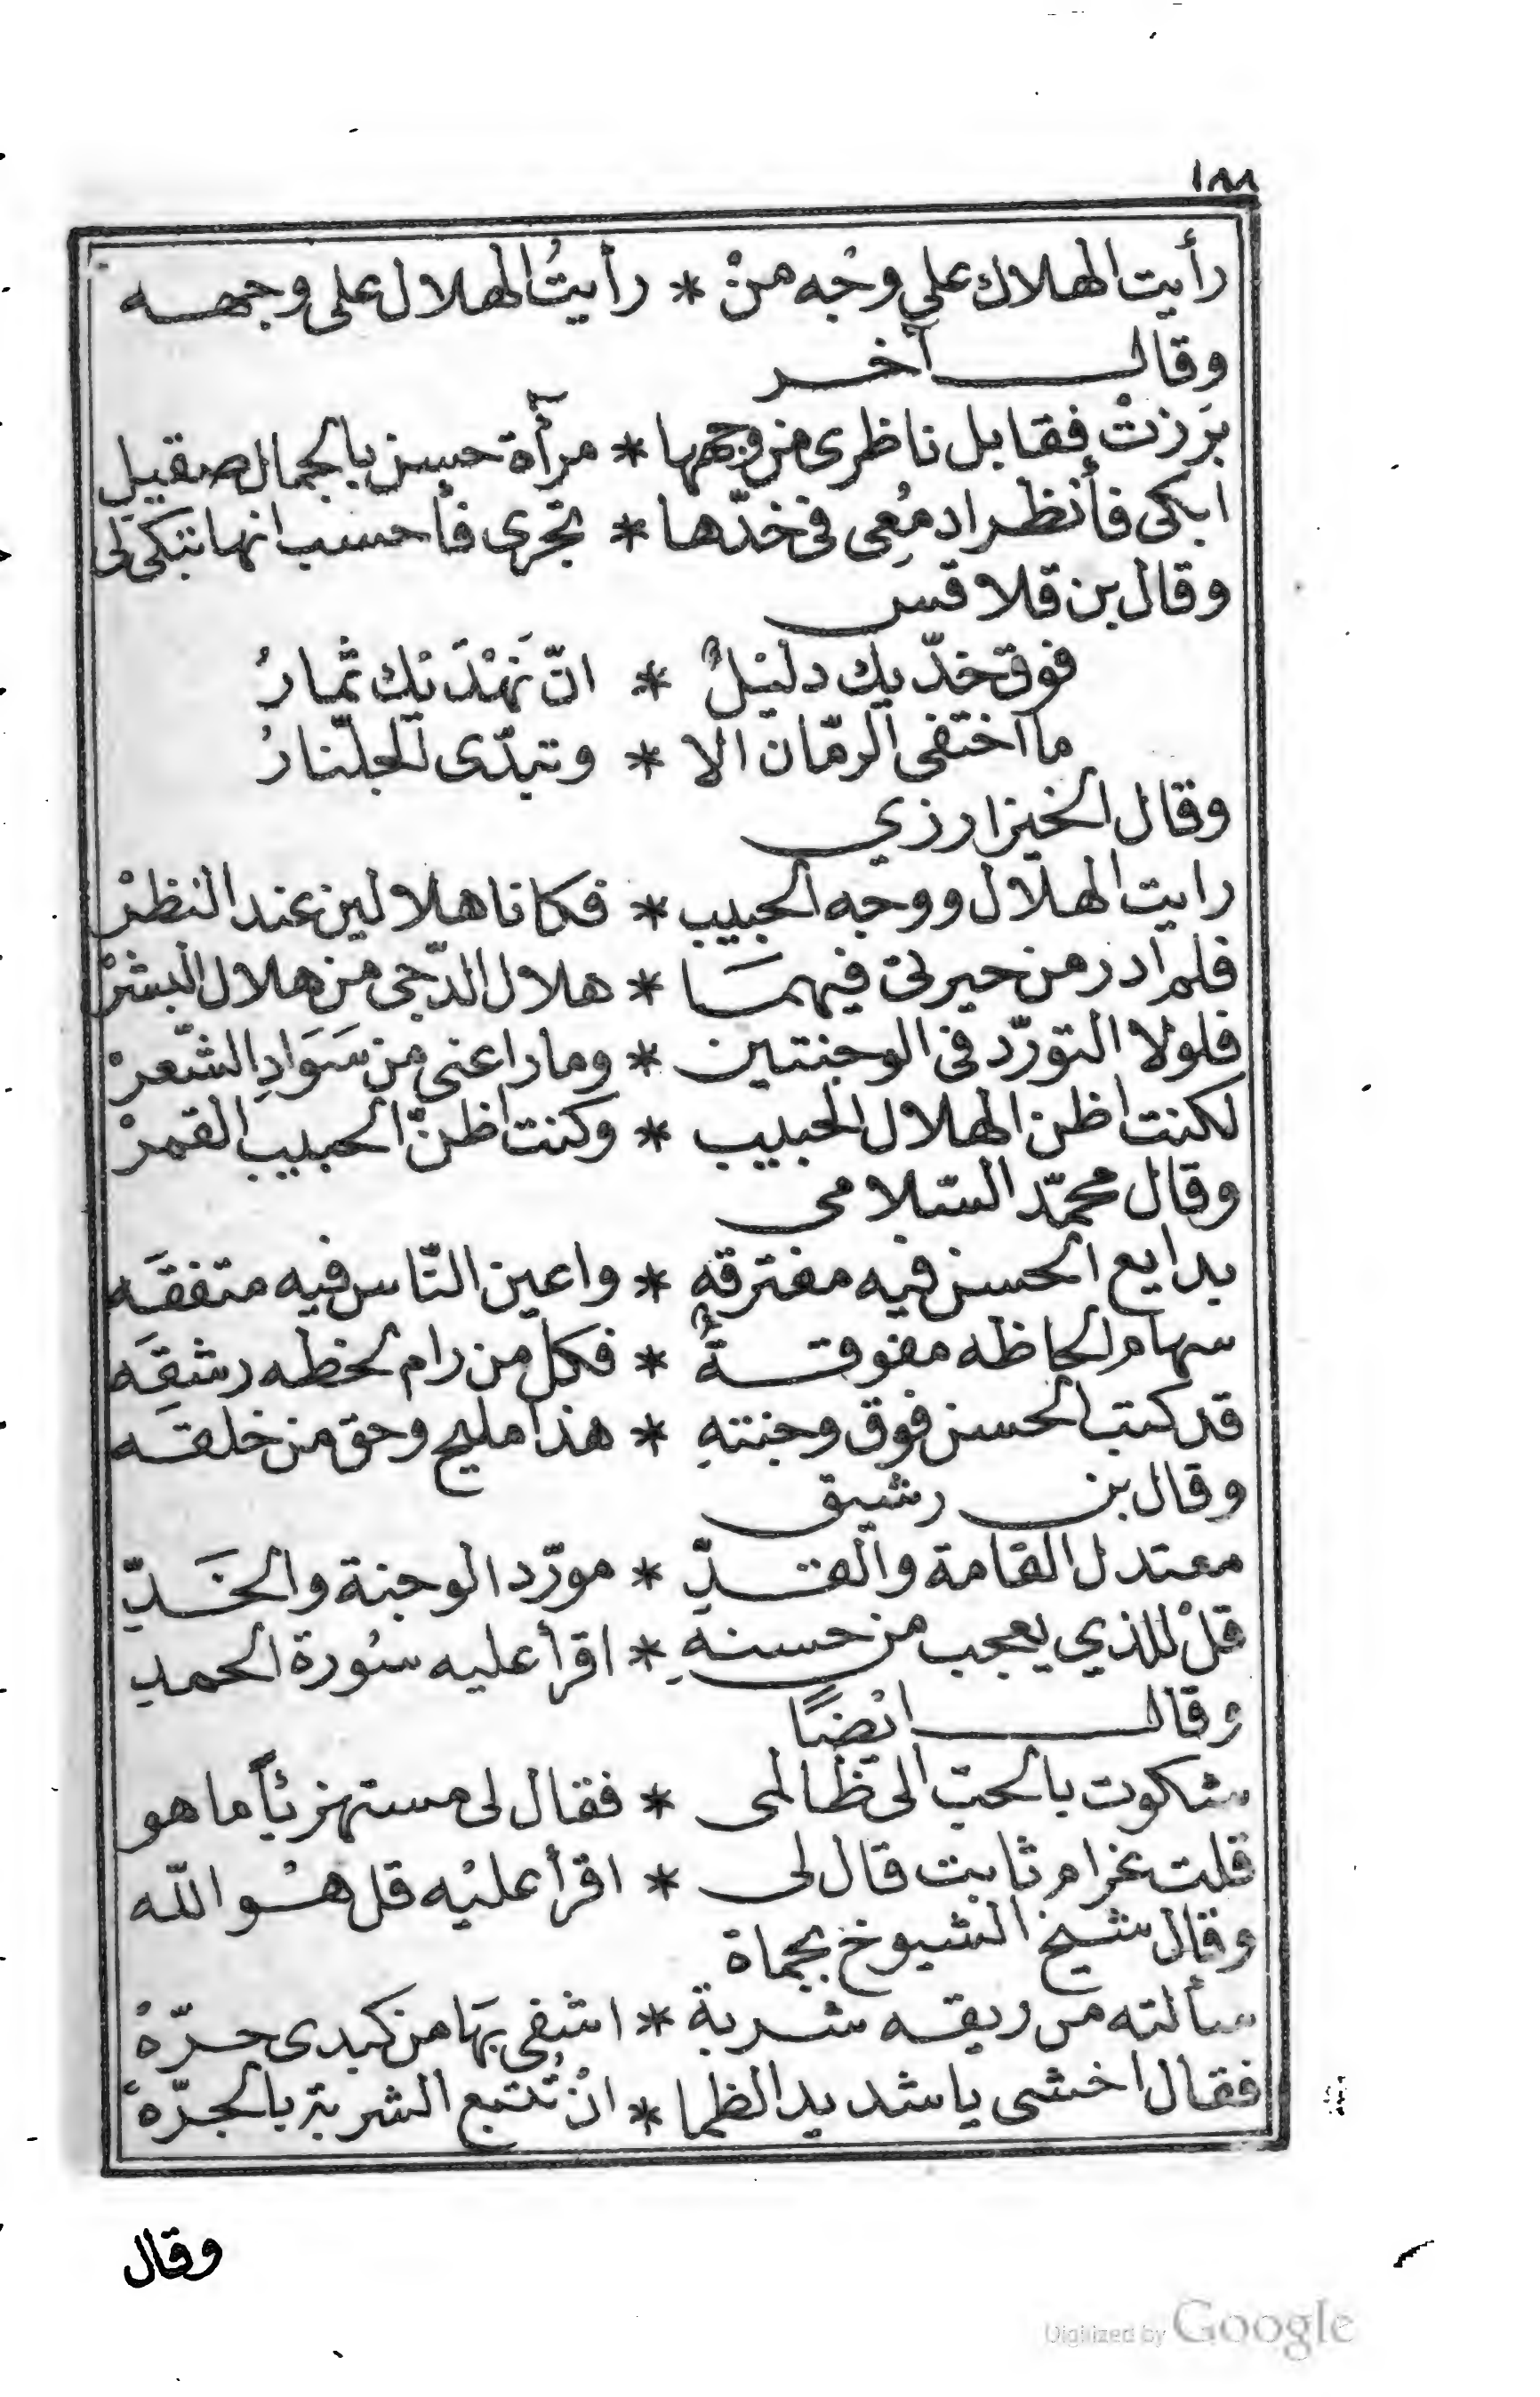 ١٨٨
رأيت الهلاك على وجْه منْ * رأيتُ الهلال على وجهه
وقال آخر
بَرزتْ فقابل ناظرى من وجهها * مرآة حسن بالجمال صقيل
ابكى فأنظر ادمُعِى فى خدّها * تجْرى فأحسب انها تبكى لى
وقال بن قلاقس
فوق خدّيك دليْلٌ * انّ نَهْدَيْك ثمارُ
ما اختفى الرمّان الا * وتبدّى الجلّنارُ
وقال الخبزارزي
رايت الهلال ووجه الحبيب * فكانا هلالين عند النظرْ
فلم ادر من حيرتى فيهمَا * هلال الدّجى من هلال البشرْ
فلولا التورّد فى الوجنتين * وما راعنى من سَوَادِ الشّعرْ
لكنت اظن الهلال الحبيب * وكنت اظنّ الحبيب القمرْ
وقال محمّد السّلامى
بدايع الحسن فيه مفترقه * واعين النّاس فيه متفقَه
سهام الحاظه مفوقةٌ * فكل من رام لحظه رشقِه
قد كتب الحسن فوق وجنتهِ * هذا مليح وحق من خلقه
وقال بن رشيق
معتدل القامة والقدِّ * مورّد الوجنة والخَدِّ
قلْ للذي يعجب من حسنهِ * اقرأ عليه سُورة الحمدِ
وقال ايْضًا
شكوت بالحبّ الى ظالمى * فقال لى مستهزئاً ما هو
قلت غرام ثابت قال لى * اقرأ عليْه قل هُو اللّه
وقال شيخ الشيوخ بحماة
سألته من ريقه شربة * اشفى بهَا من كبدى حرّهْ
فقال اخشى يا شديد الظما * انْ تُتبع الشربة بالجرّهْ
وقال
Digitized by Google